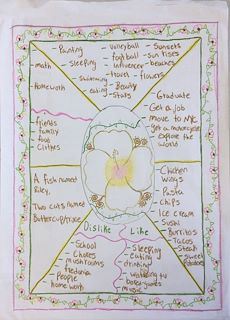 - Painting
- sleeping
- swimming
- eating
- volleyball
- football
- influencer
- travel
- Beauty
- Stars
- Sunsets
- sun rises
- beaches
- flowers
- math
- Homework
- Graduate
- Get a job
- move to NYC
- get a motorcycle
- explore the world
- friends
- family
- food
- Clothes
A fish named
Riley,
Two cats named
Buttercup/
- Chicken
wings
- Pasta
- Chips
- Ice cream
- Sushi
- Burritos
- Tacos
- Steak
- sweet
potatoes
Dislike
- School
- Chores
- mushrooms
- People
- home work
Like
- sleeping
- eating
- drinking
- music